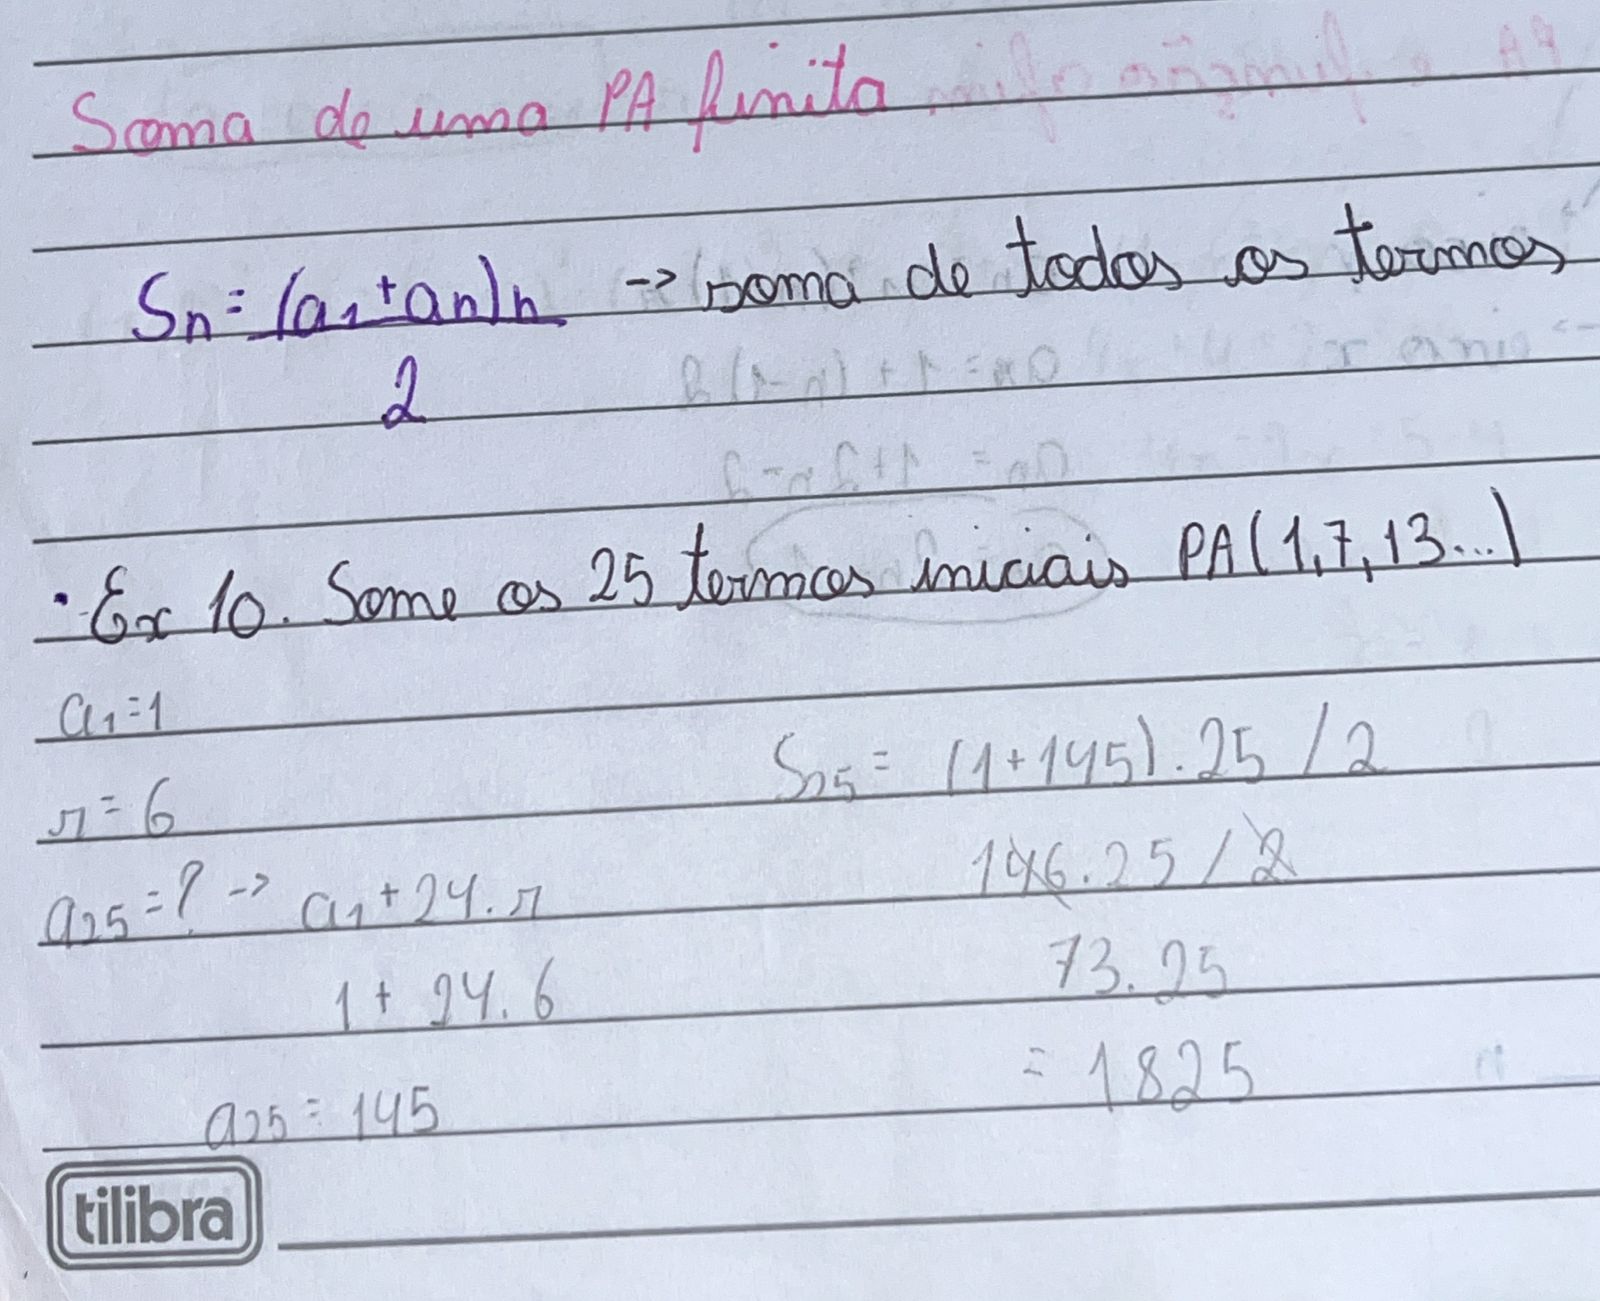 Soma de uma PA finita
Sn = (a1 + an)n -> soma de todos os termos
2
• Ex 10. Some os 25 termos iniciais PA(1,7,13...)
a1 = 1
r = 6
a25 = ? -> a1 + 24.r
1 + 24.6
a25 = 145
S25 = (1+145).25 / 2
146.25 / 2
73.25
= 1825
tilibra